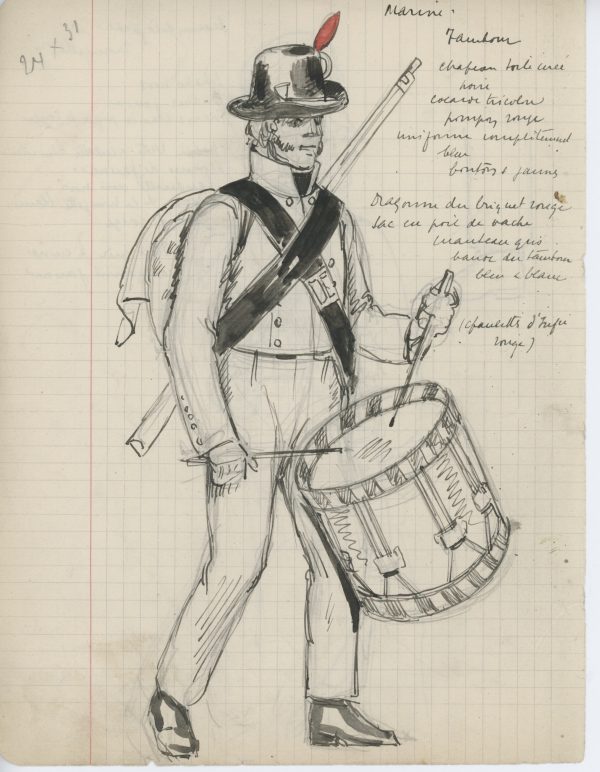 24 x 31
Marine.
Tambour
chapeau toile cirée
noire
cocarde tricolore
pompon rouge
uniforme complètement
bleu
boutons jaunes
Dragonne du briquet rouge
sac en poil de vache
manteau gris
bande du tambour
bleu & blanc
(épaulettes d'
rouge)